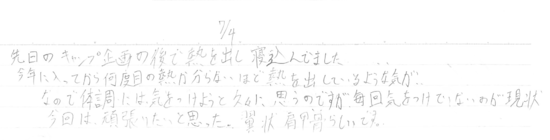 7/4
先日のキャンプ企画の後で熱を出し寝込んでました
今年に入ってから何度目の熱か分らないほど熱を出しているような気が..
なので体調には気をつけようと 思うのですが毎回気をつけていないのが現状
今回は 頑張りたいと思った。 翼状肩甲骨らしいです